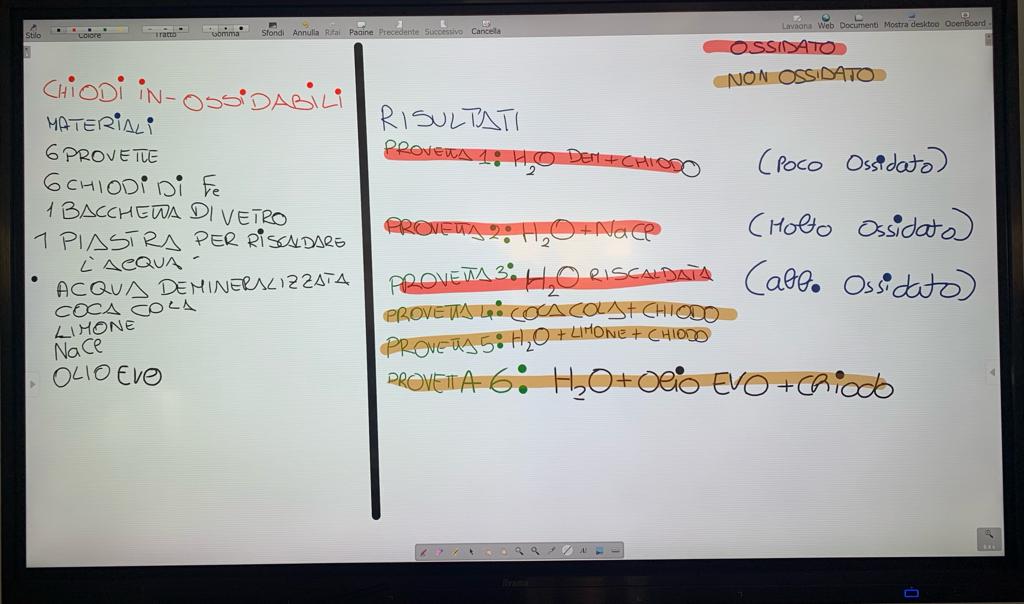 Stilo Colore Tratto Gomma Sfondi Annulla Rifai Pagine Precedente Successivo Cancella
Lavagna Web Documenti Mostra desktop OpenBoard
CHIODI IN-OSSIDABILI
MATERIALI
6 PROVETTE
6 CHIODI DI Fe
1 BACCHETTA DI VETRO
1 PIASTRA PER RISCALDARE
L'ACQUA
• ACQUA DEMINERALIZZATA
COCA COLA
LIMONE
NaCl
OLIO EVO
OSSIDATO
NON OSSIDATO
RISULTATI
PROVETTA 1: H2O DEM + CHIODO (Poco Ossidato)
PROVETTA 2: H2O + NaCl (Molto Ossidato)
PROVETTA 3: H2O RISCALDATA (abb. Ossidato)
PROVETTA 4: COCA COLA + CHIODO
PROVETTA 5: H2O + LIMONE + CHIODO
PROVETTA 6: H2O + Olio EVO + CHiodo
iiyama